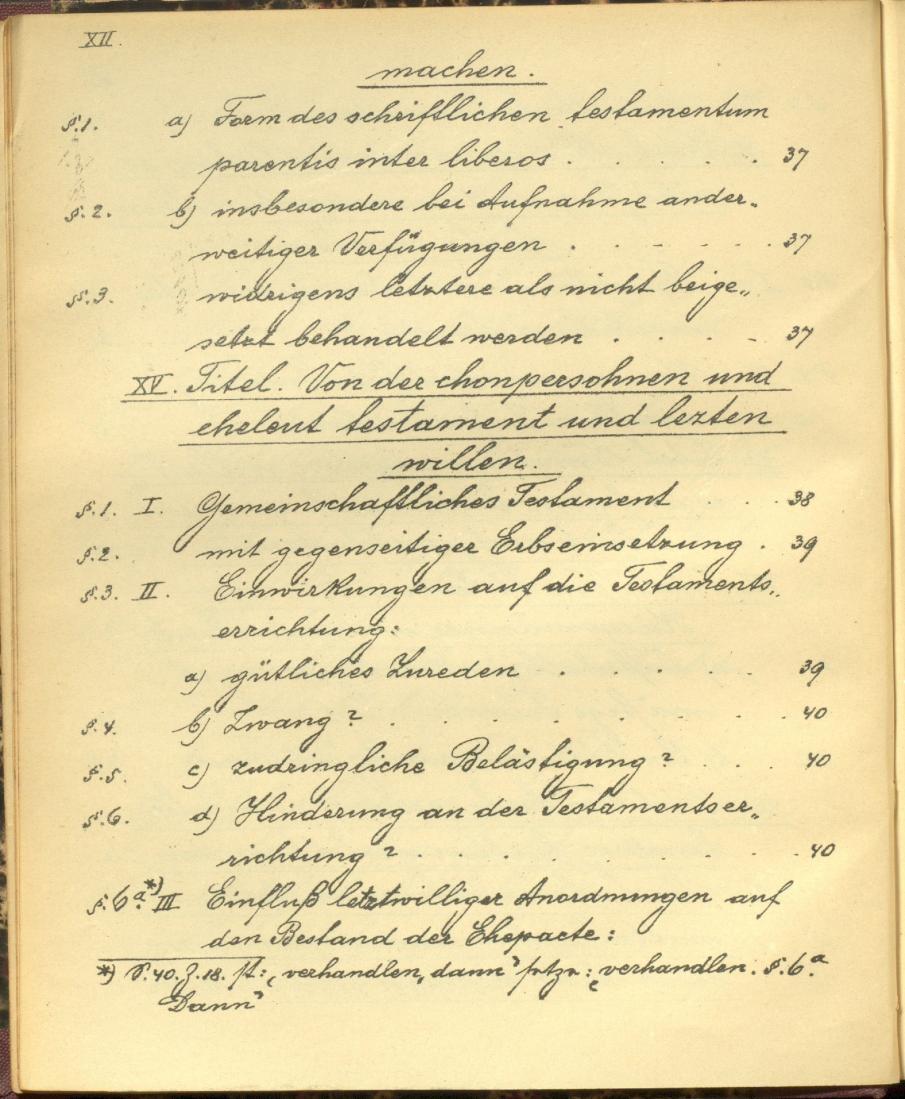 XII.
machen.
§.1. a) Form des schriftlichen testamentum
parentis inter liberos . . . . . 37
§.2. b) insbesondere bei Aufnahme ander„
weitiger Verfügungen . . - - - . 37
§.3. widrigens letztere als nicht beige„
setzt behandelt werden . . . - 37
XV. Titel. Von der chonpersohnen und
eheleut testament und lezten
willen.
§.1. I. Gemeinschaftliches Testament . . . 38
§.2. mit gegenseitiger Erbseinsetzung . 39
§.3. II. Einwirkungen auf die Testaments„
errichtung:
a) gütliches Zureden . . . . . 39
§.4. b) Zwang? . . . . . . . . 40
§.5. c) zudringliche Belästigung? . . . 40
§.6. d) Hinderung an der Testamentser„
richtung? . . . . . . . . 40
§.6a.*) III Einfluß letztwilliger Anordnungen auf
den Bestand der Ehepacte:
*) S.40.Z.18. st: ‚verhandlen, dann’ : ‚verhandlen. §.6.a
Dann’